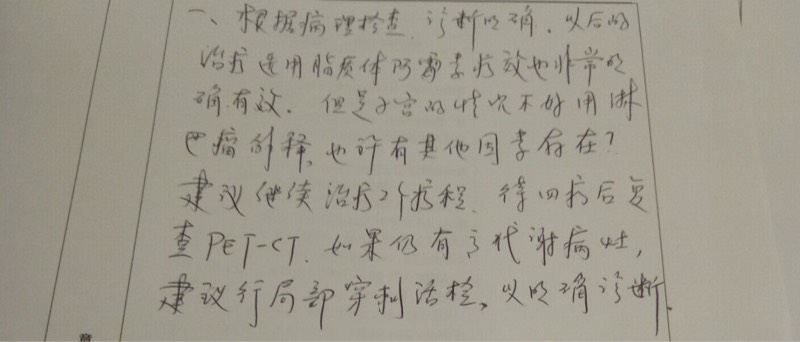 一、根据病理检查 诊断明确,以后的
治疗选用脂质体阿霉素疗效也非常明
确有效. 但是子宫的情况不好用淋
巴瘤解释,也许有其他因素存在?
建议继续治疗2个疗程. 待四疗后复
查PET-CT. 如果仍有高代谢病灶,
建议行局部穿刺活检、以明确诊断.
意